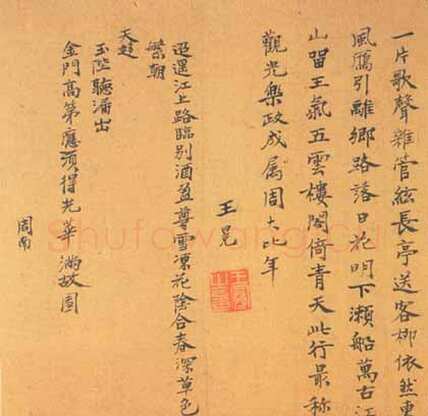 一片歌聲雜管絃長亭送客柳依然東
風鴈引離鄉路落日花明下瀨船萬古江
山留王氣五雲樓閣倚青天此行最称
觀光樂政成属周大比年
王冕
迢遞江上路臨別酒盈尊雪凛花陰合春深草色
繁朝
天趍
玉陛聽出
金門高第應須得光華滿故園
周南
Shufawang.Cn